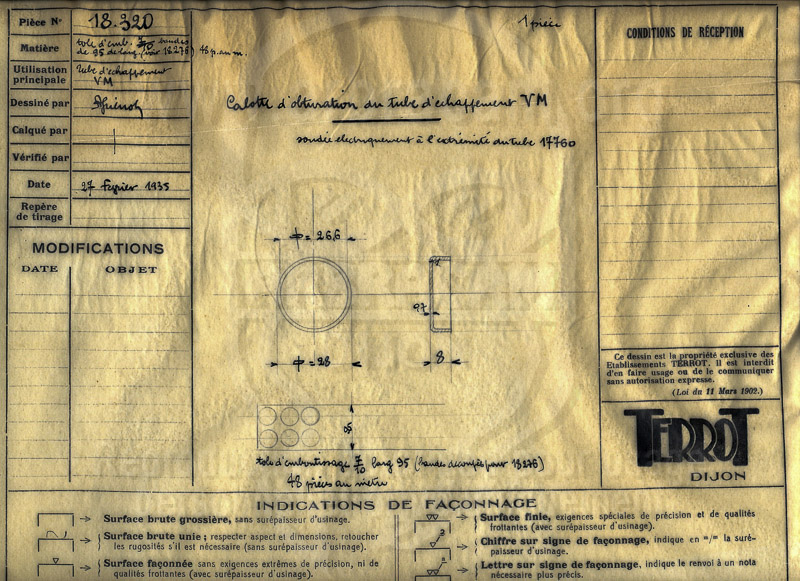 Pièce N° 18.320
Matière tole d'emb. 7/10 bandes
de 95 de larg (voir 18276) 48 p. au m.
Utilisation
principale
tube d'échappement
VM
Dessiné par
Calqué par
Vérifié par
Date 27 Fevrier 1935
Repère
de tirage
MODIFICATIONS
DATE OBJET
1 pièce
Calotte d'obturation du tube d'échappement VM
soudée electriquement à l'extrémité du tube 17760
ϕ = 26,6
ϕ = 28
8
95
tole d'emboutissage 7/10 larg 95 (bandes decoupées pour 18276)
48 pièces au metre
CONDITIONS DE RÉCEPTION
Ce dessin est la propriété exclusive des
Etablissements TERROT. Il est interdit
d'en faire usage ou de le communiquer
sans autorisation expresse.
(Loi du 11 Mars 1902.)
TERROT
DIJON
INDICATIONS DE FAÇONNAGE
Surface brute grossière, sans surépaisseur d'usinage.
Surface brute unie ; respecter aspect et dimensions, retoucher
les rugosités s'il est nécessaire (sans surépaisseur d'usinage).
Surface façonnée sans exigences extrêmes de précision, ni de
qualités frottantes (avec surépaisseur d'usinage).
Surface finie, exigences spéciales de précision et de qualités
frottantes (avec surépaisseur d'usinage).
2
Chiffre sur signe de façonnage, indique en m/m la suré-
paisseur d'usinage.
Lettre sur signe de façonnage, indique le renvoi à un nota
nécessaire plus précis.